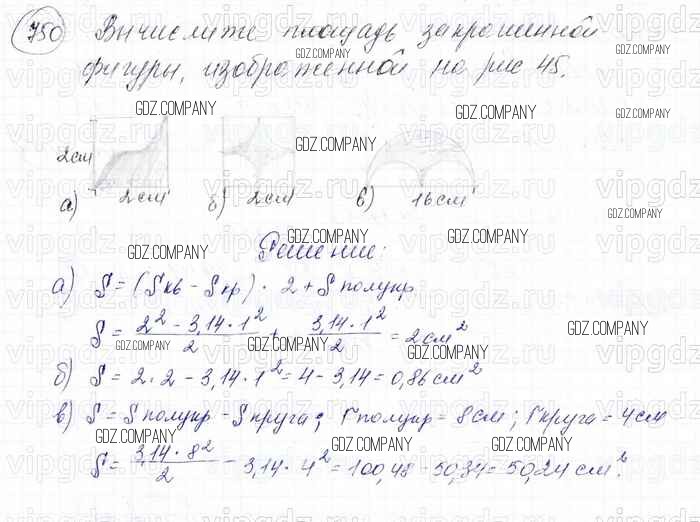 750 Вычислите площадь закрашенной
фигуры, изображенной на рис 45.
2см
а) 2см б) 2см в) 16см
Решение:
а) S = (Sкв - Sкр) · 2 + S полукр
S = (2² - 3,14 · 1²)/2 + (3,14 · 1²)/2 = 2см²
б) S = 2 · 2 - 3,14 · 1² = 4 - 3,14 = 0,86см²
в) S = S полукр - S круга; r полукр = 8см; r круга = 4см
S = (3,14 · 8²)/2 - 3,14 · 4² = 100,48 - 50,34 = 50,24 см².
GDZ.COMPANY
vipgdz.ru